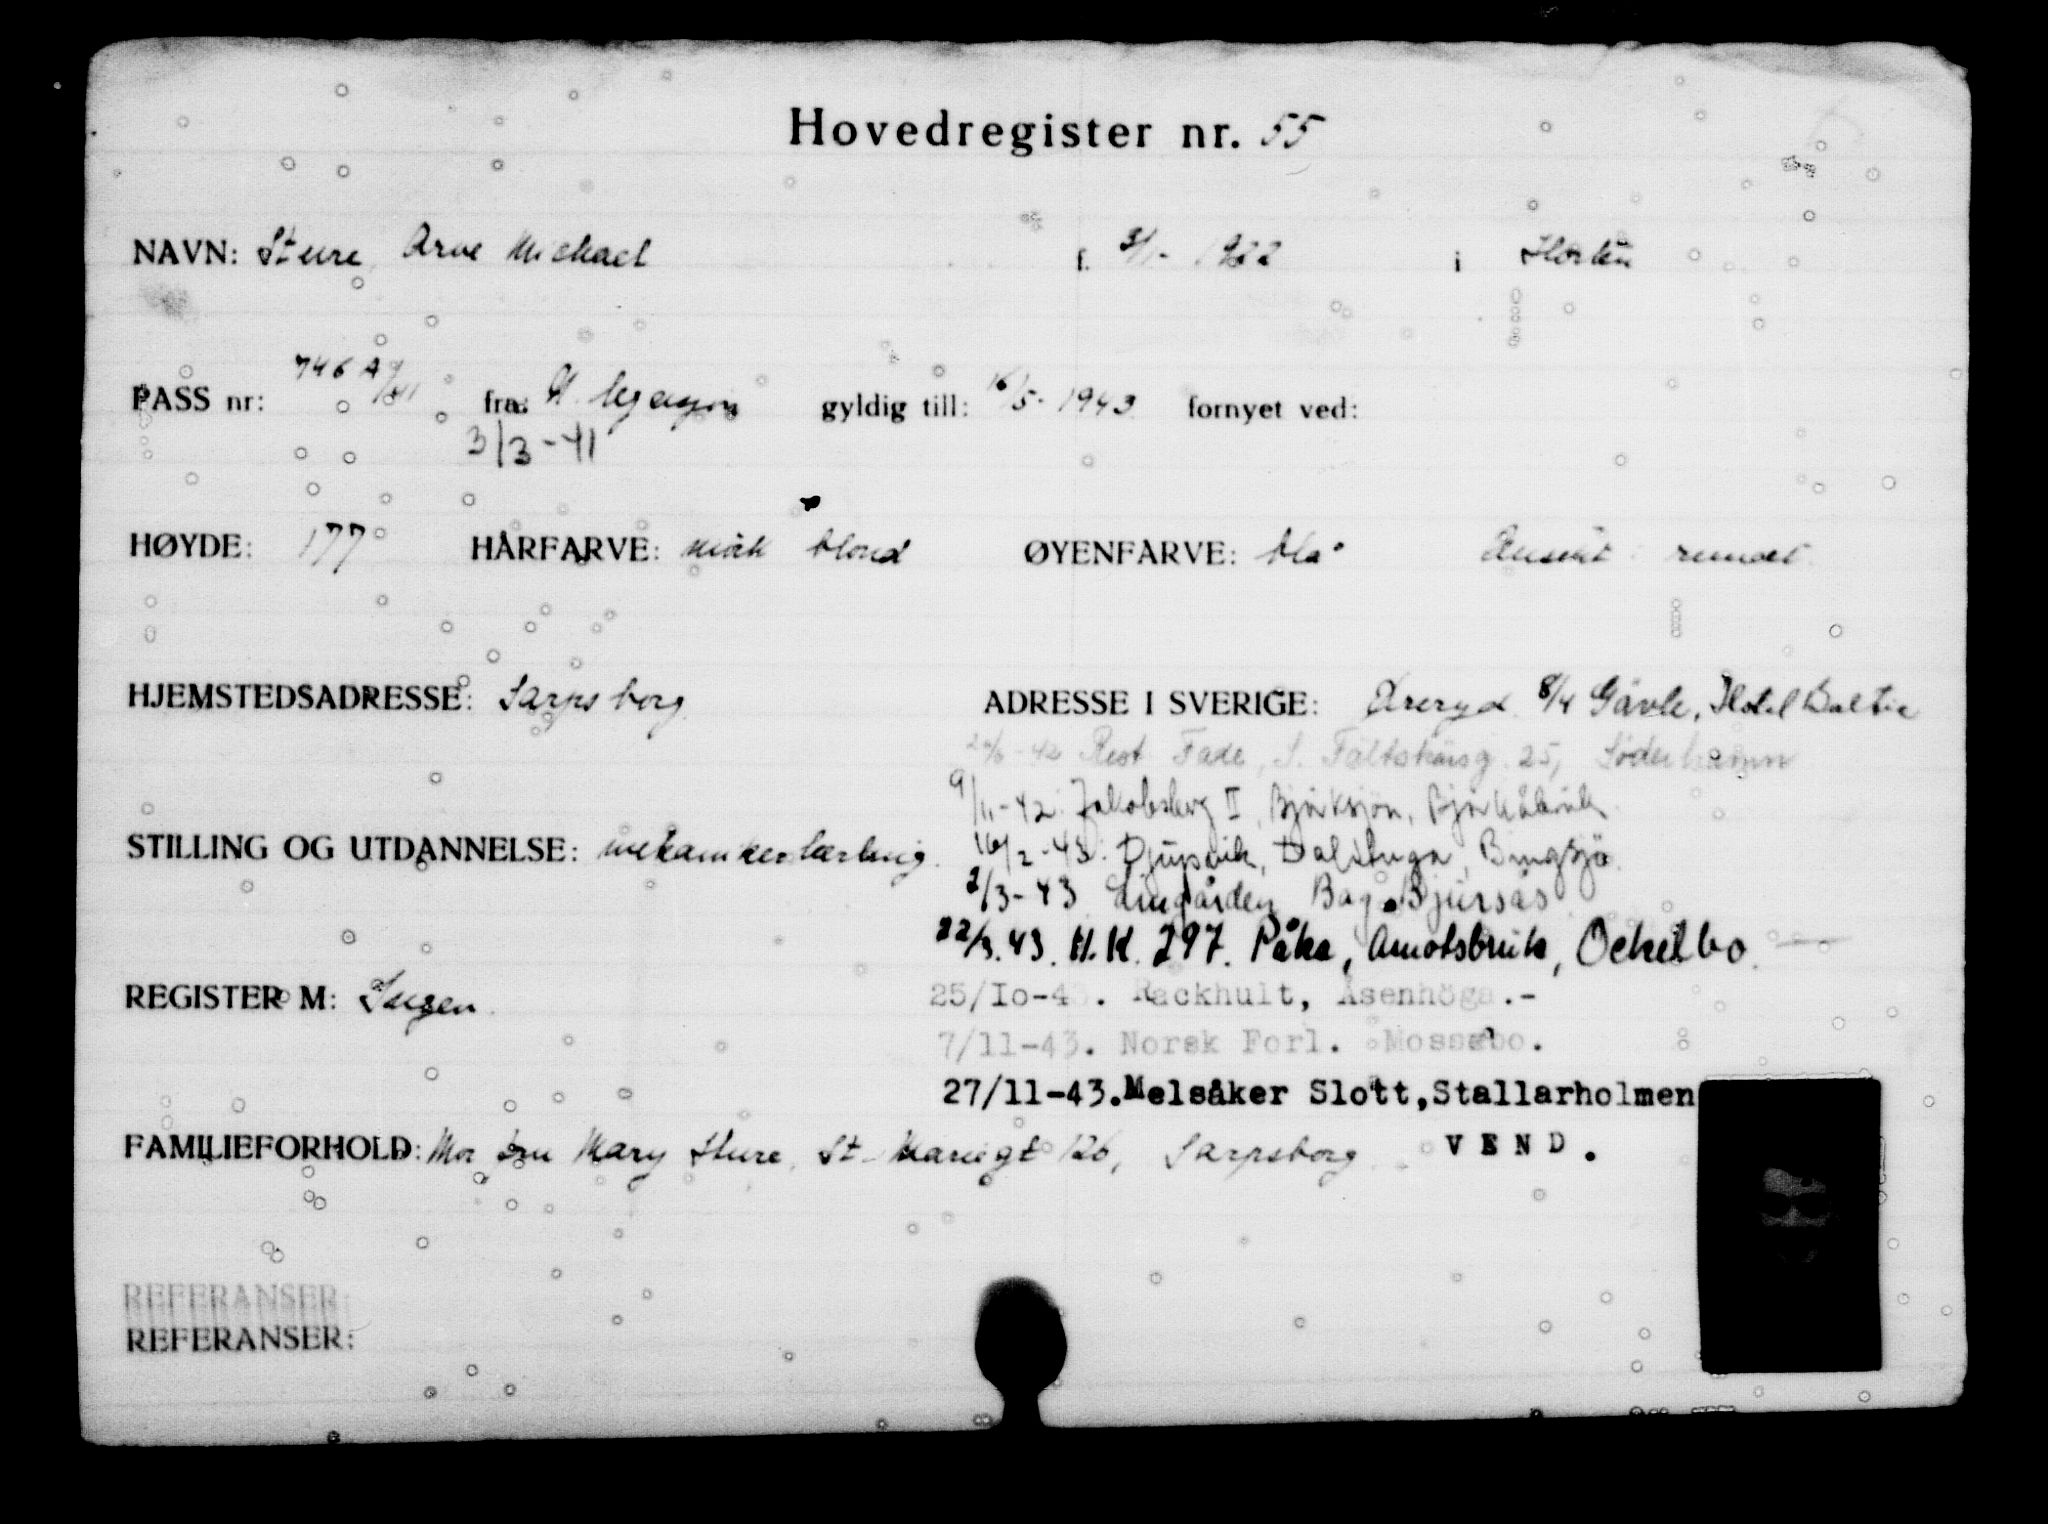 Hovedregister nr. 55
NAVN: Sture, Arve Michael f. 3/1- 1922 i Horten
PASS nr: 746 A9/41 fra: St. legasjon gyldig till: 16/5- 1943 fornyet ved:
3/3-41
HØYDE: 177 HÅRFARVE: mørk blond ØYENFARVE: blå Ansikt: rundt
HJEMSTEDSADRESSE: Sarpsborg ADRESSE I SVERIGE: Øreryd 8/4 Gävle, Hotel Baltic
-42 Rest Fade, S. Fältskärsg. 25, Söderhamn
9/11-42. Jakobsberg II, Björksjön, Björkåbruk
STILLING OG UTDANNELSE: mekanikerlærling. 16/2-43. Djupvik, Dalstuga, Bingsjö.
2/3-43 Lingården Bag. Bjursås
22/3.43. H.K. 297. Påka, Åmotsbruk, Ockelbo.
REGISTER M: Ingen. 25/10-43. Rackhult, Åsenhöga.-
7/11-43. Norsk Forl. Mossebo.
27/11-43. Melsåker Slott, Stallarholmen
FAMILIEFORHOLD: Mor fru Mary Sture, St. Mariegt 126, Sarpsborg. VEND.
REFERANSER:
REFERANSER: